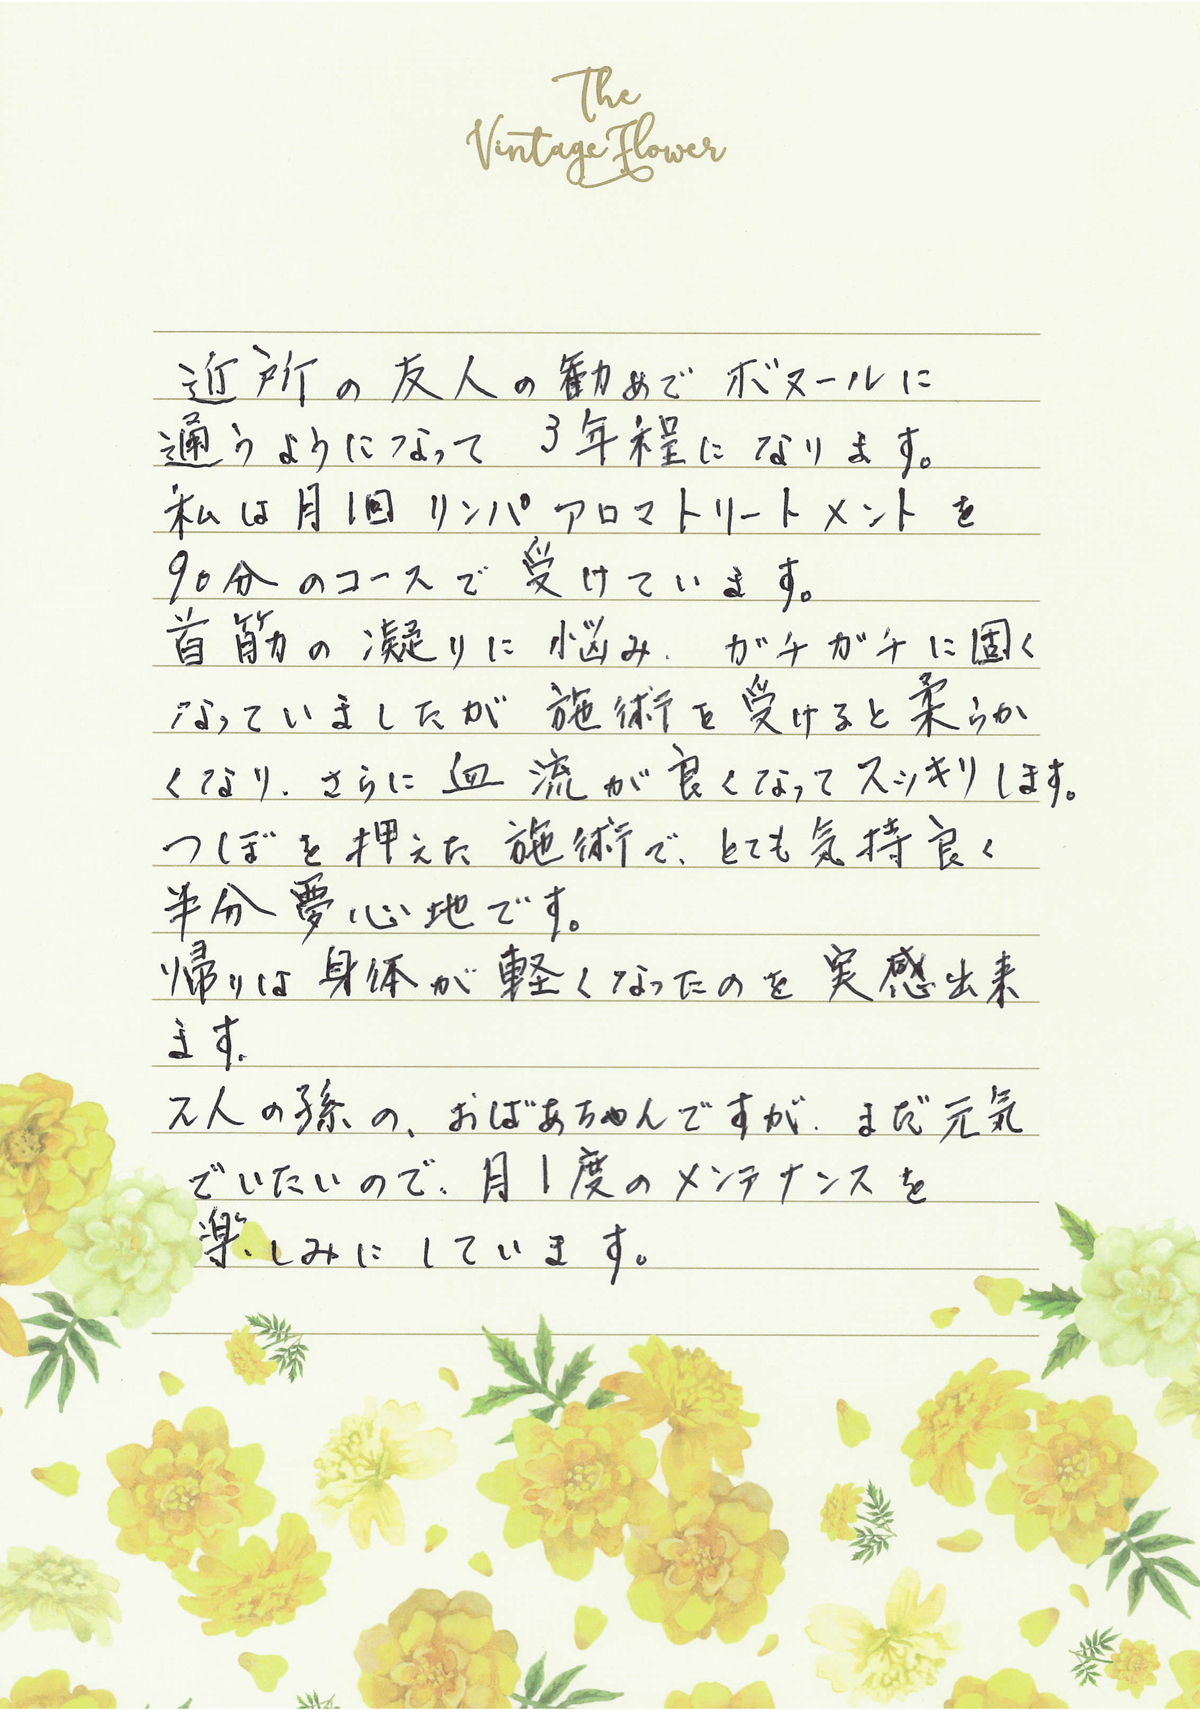 The
Vintage Flower
近所の友人の勧めで ボヌールに
通うようになって 3年程になります。
私は月1回 リンパ アロマトリートメント を
90分のコースで 受けています。
首筋の凝りに 悩み、ガチガチに固く
なっていましたが 施術を受けると柔らか
くなり、さらに 血流が良くなってスッキリします。
つぼを押えた 施術で、とても気持良く
半分夢心地です。
帰りは身体が軽くなったのを 実感出来
ます。
2人の孫の、おばあちゃんですが、まだ元気
でいたいので、月1度のメンテナンスを
楽しみにしています。